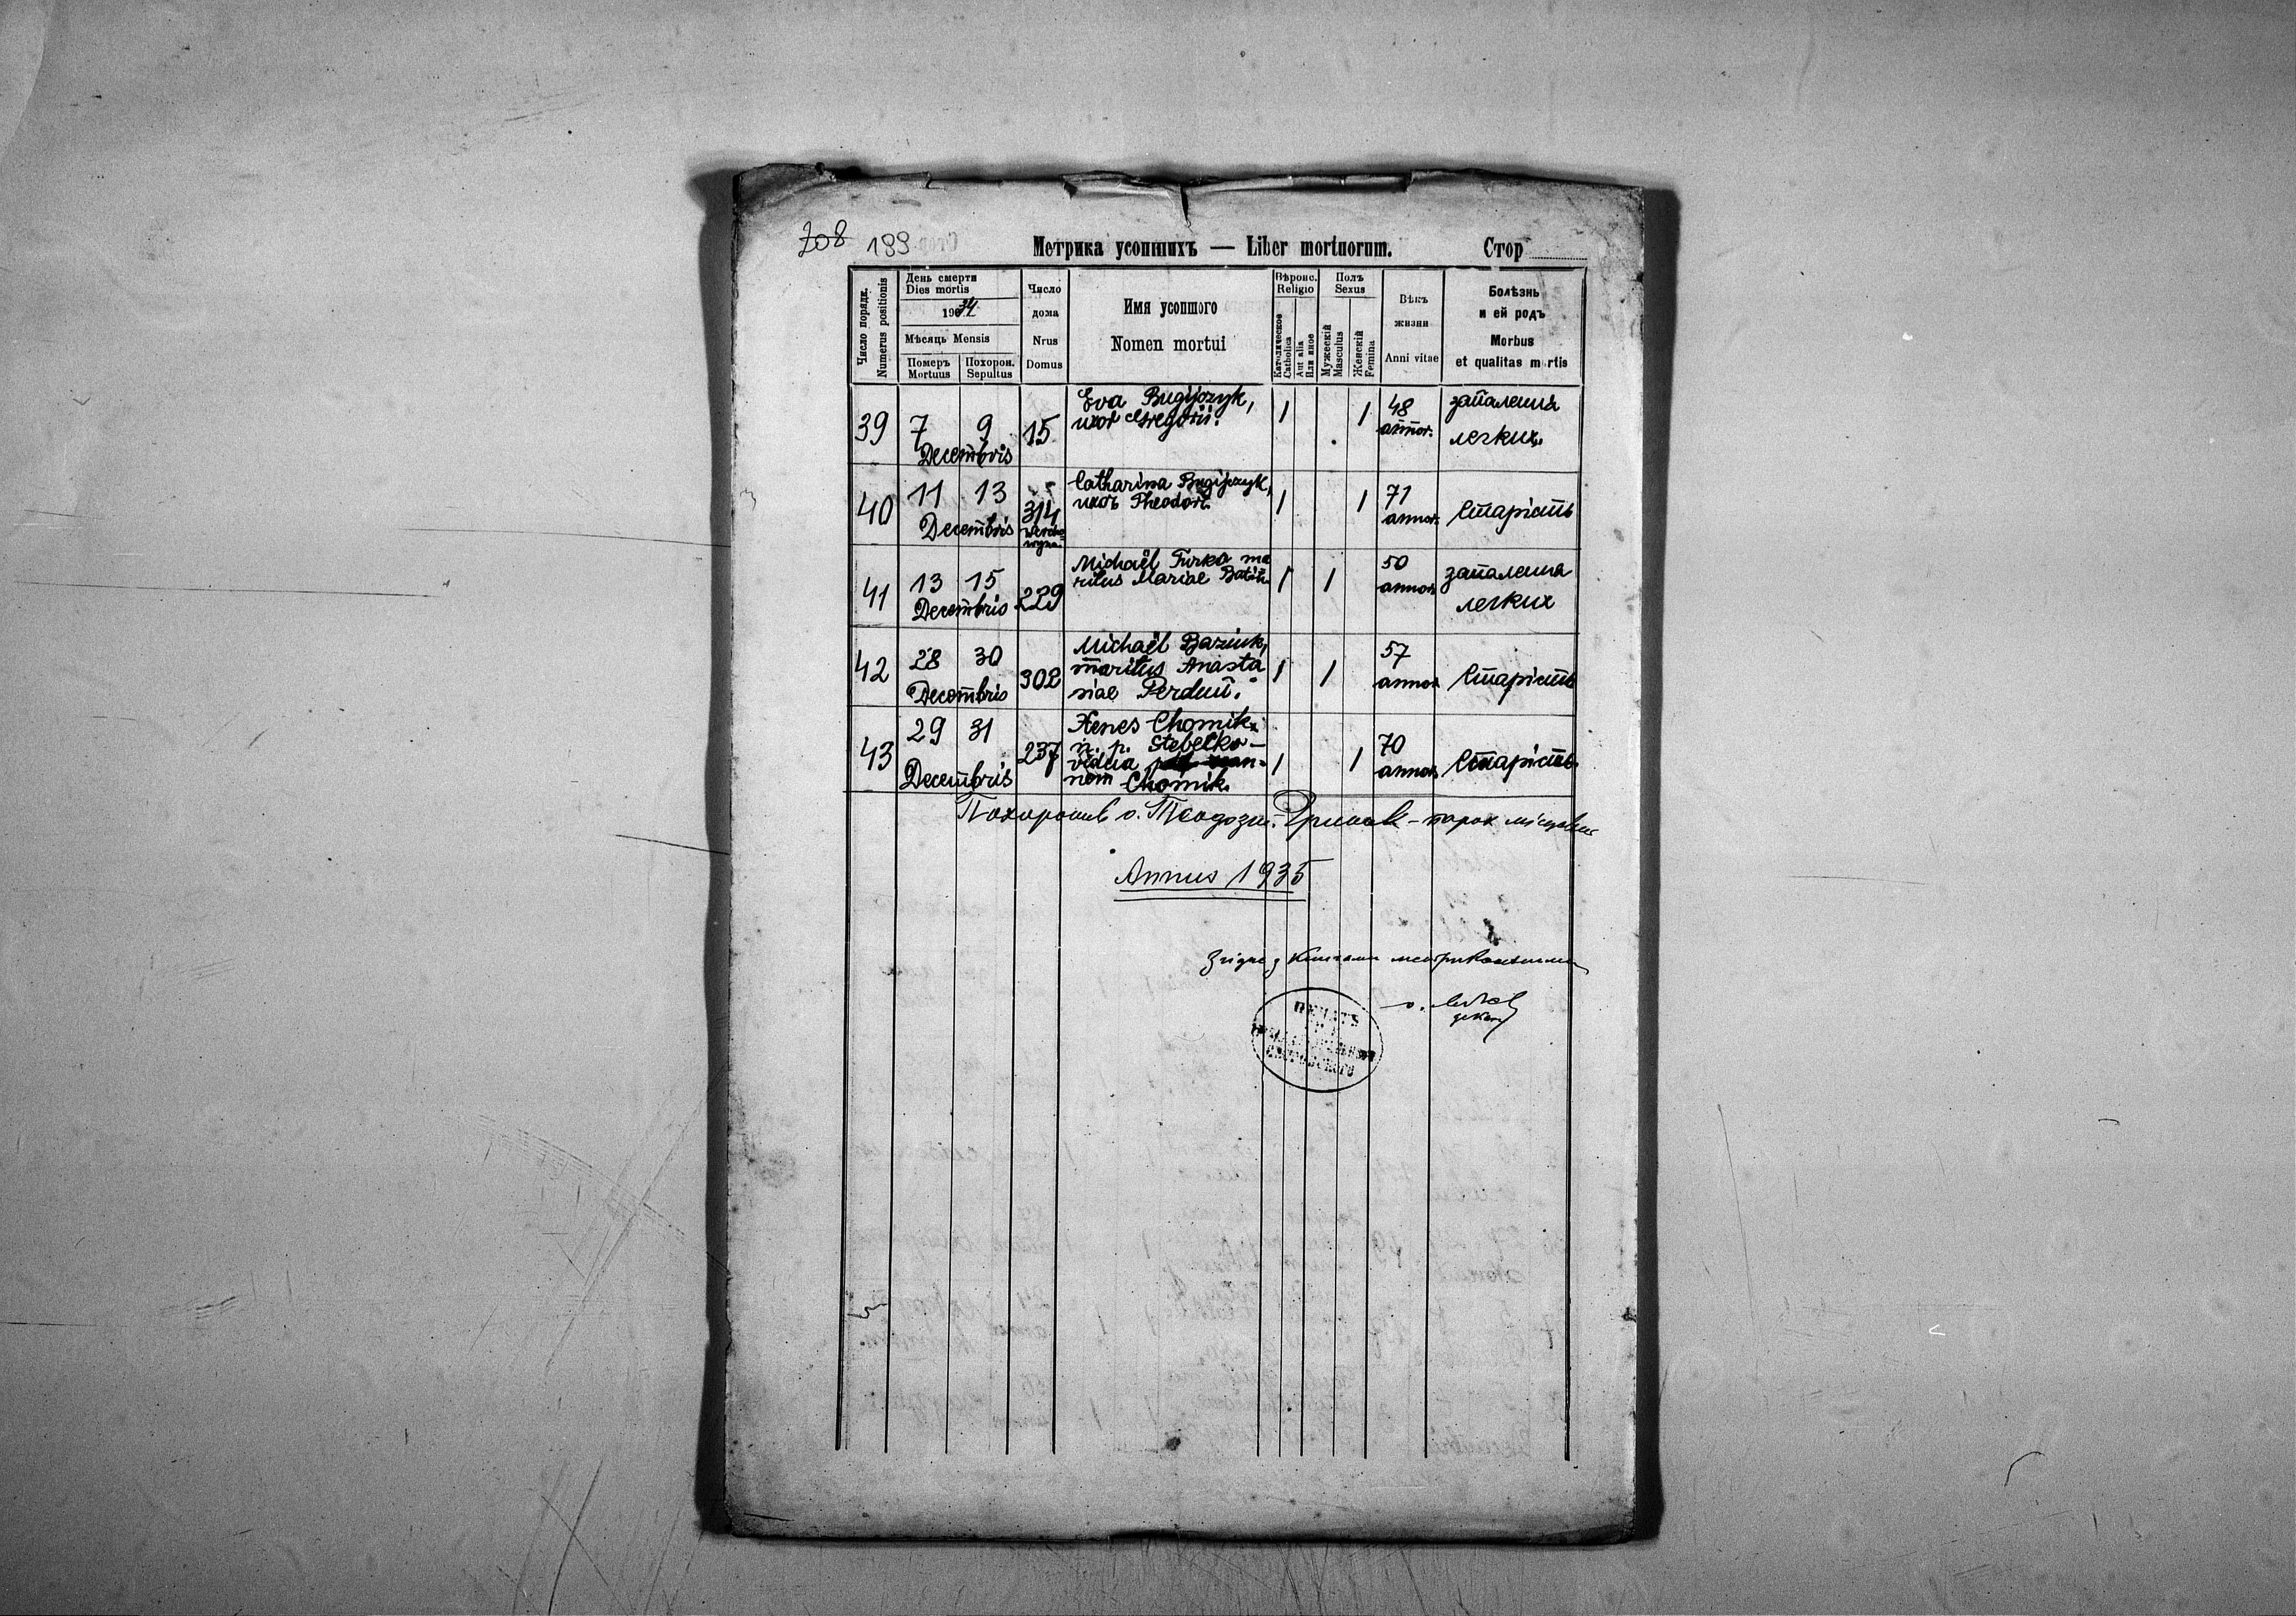 708 199
Метрика усопшихъ — Liber mortuorum. Стор
Число порядк.
Numerus positionis
День смерти
Dies mortis
1934
Мѣсяць Mensis
Померъ
Mortuus
Похорон.
Sepultus
Число
дома
Nrus
Domus
Имя усопшого
Nomen mortui
Вѣроис.
Religio
Католическое
Catholica
Aut alia
Или иное
Полъ
Sexus
Мужескій
Masculus
Женскій
Femina
Вѣкъ
жизни
Anni vitae
Болѣзнь
и ей родъ
Morbus
et qualitas mortis
39 7 9 Decembris 15
Eva Bugijczyk,
uxor Gregorii.
1 1 48 annor. запалення
легких.
40 11 13 Decembris 314
Catharina Bugijczyk,
uxor Theodori.
1 1 71 annor. Старість
41 13 15 Decembris 229
Michaël Furka ma
ritus Mariae
1 1 50 annor. запалення
легких
42 28 30 Decembris 302
Michaël Baziuk,
maritus Anasta
siae
1 1 57 annor. Старість
43 29 31 Decembris 237
Xenes Chomik.
n. p. Stebelko-
vidua
nem Chomik.
1 1 70 annor. Старість
Похоронив о. Теодозій - парох місцевий
Annus 1935
Згідне з книгами метрикальними
о.
декан
ПЕЧАТЬ